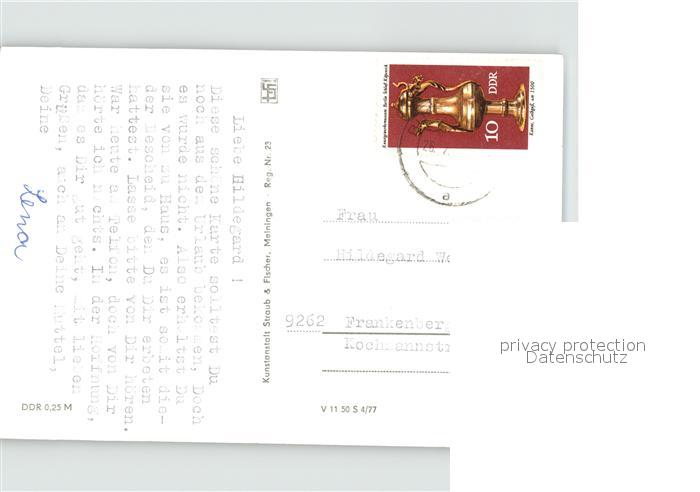 Liebe Hildegard !
Diese schöne Karte solltest Du
noch aus dem Urlaub bekommen, Doch
es wurde nicht. Also erhältst Du
sie von zu Haus, es ist somit die-
der Bescheid, den Du Dir erbeten
hattest. Lasse bitte von Dir hören.
War heute am Telfon, doch von Dir
hörte ich nichts. In der Hoffnung,
das es Dir gut geht, mit lieben
Grüßen, auch an Deine Muttel,
Deine
Lena
DDR 0,25 M
Kunstanstalt Straub & Fischer, Meiningen Reg. Nr. 23
V 11 50 S 4/77
Kunstgewerbemuseum Berlin Schloß Köpenick
DDR
10
Kanne, Goldgef., um 1500
Frau
Hildegard We
9262 Frankenberg
Kochmannstr
privacy protection
Datenschutz